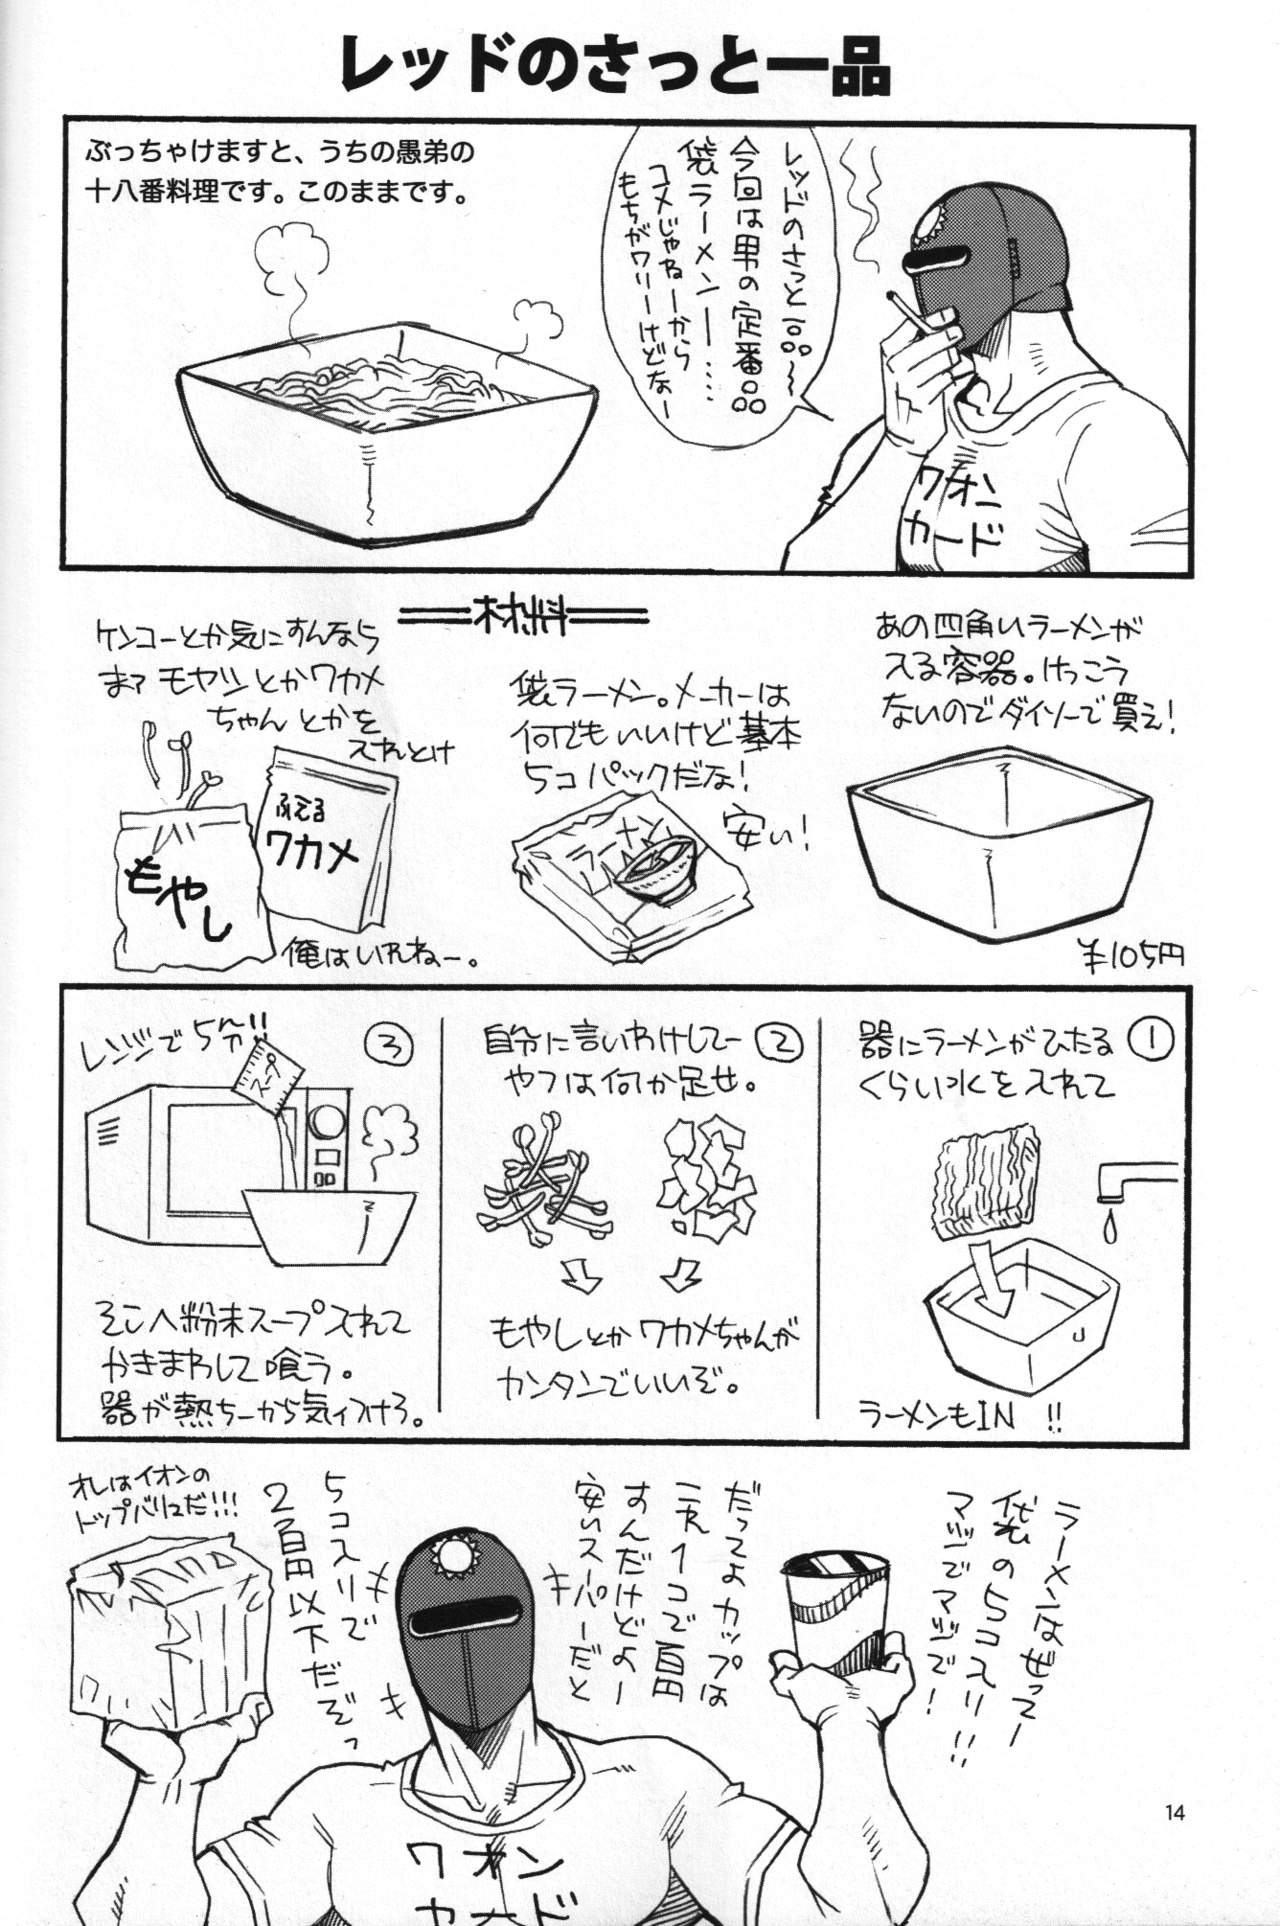 レッドのさっと一品
ぶっちゃけますと、うちの愚弟の
十八番料理です。このままです。
レッドのさっと一品~
今回は男の定番品
袋ラーメンー……
コメじゃねーから
もちがワリーけどなー
ワオン
カード
材料
あの四角いラーメンが
入る容器。けっこう
ないのでダイソーで買え!
¥105円
袋ラーメン。メーカーは
何でもいいけど基本
5コパックだな!
安い!
ラーメン
ケンコーとか気にすんなら
まァモヤシとかワカメ
ちゃんとかを
入れとけ
もやし
ふえる
ワカメ
俺はいれねー。
①
器にラーメンがひたる
くらい水を入れて
ラーメンもIN!!
②
自分に言いわけしてー
やつは何か足せ。
もやしとかワカメちゃんが
カンタンでいいぞ。
③
レンジで5分!!
スープ
そこへ粉末スープ入れて
かきまわして喰う。
器が熱ちーから気ィつけろ。
ラーメンはぜってー
袋の5コ入り!!
マジでマジで!
だってよカップは
これ1コで百円
すんだけどよー
安いスーパーだと
5コ入りで
2百円以下だぞっ
オレはイオンの
トップバリュだ!!!
ワオン
カード
14